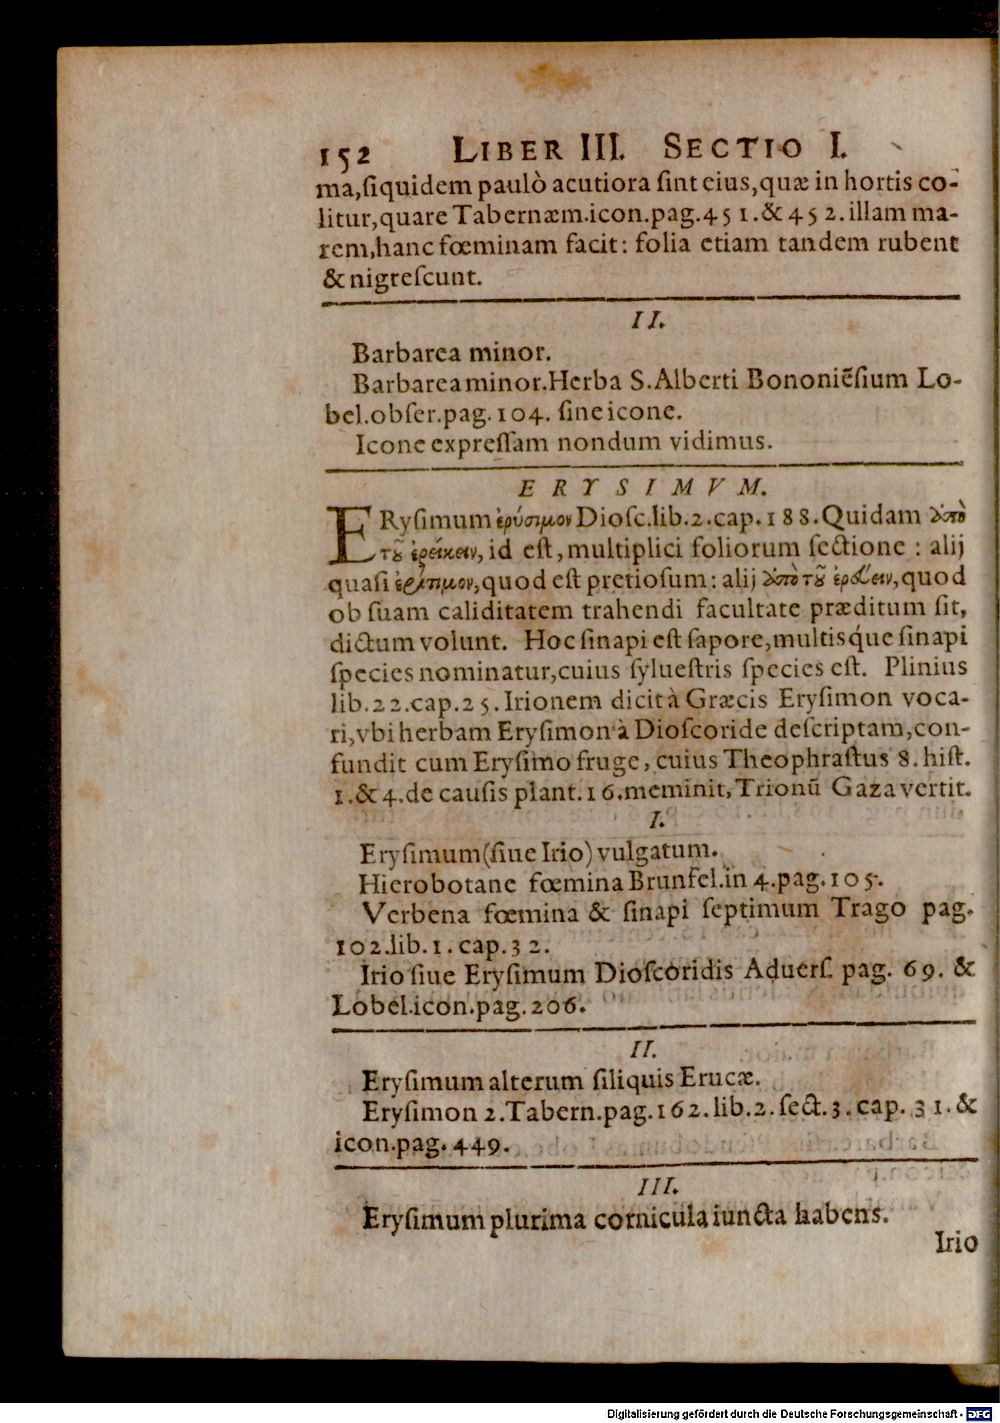 152 LIBER III. SECTIO I.
ma,ſiquidem paulò acutiora ſint eius,quæ in hortis co-
litur,quare Tabernæm.icon.pag.451.& 452.illam ma-
rem,hanc fœminam facit: folia etiam tandem rubent
& nigreſcunt.
II.
Barbarea minor.
Barbarea minor.Herba S.Alberti Bononiẽſium Lo-
bel.obſer.pag.104. ſine icone.
Icone expreſſam nondum vidimus.
ERYSIMVM.
ERyſimum ἐρύσιμον Dioſc.lib.2.cap.188.Quidam ἀπὸ
τοῦ ἐρείκειν, id eſt, multiplici foliorum ſectione : alij
quaſi ἐρίτιμον,quod eſt pretioſum: alij ἀπὸ τοῦ ἐρύειν,quod
ob ſuam caliditatem trahendi facultate præditum ſit,
dictum volunt. Hoc ſinapi eſt ſapore,multisq́ue ſinapi
ſpecies nominatur,cuius ſylueſtris ſpecies eſt. Plinius
lib.22.cap.25.Irionem dicit à Græcis Eryſimon voca-
ri,vbi herbam Eryſimon à Dioſcoride deſcriptam,con-
fundit cum Eryſimo fruge, cuius Theophraſtus 8.hiſt.
1.& 4.de cauſis plant.16.meminit,Trionũ Gaza vertit.
I.
Eryſimum(ſiue Irio)vulgatum.
Hierobotane fœmina Brunfel.in 4.pag.105.
Verbena fœmina & ſinapi ſeptimum Trago pag.
102.lib.1.cap.32.
Irio ſiue Eryſimum Dioſcoridis Aduerſ. pag. 69. &
Lobel.icon.pag.206.
II.
Eryſimum alterum ſiliquis Erucæ.
Eryſimon 2.Tabern.pag.162.lib.2.ſect.3.cap.31.&
icon.pag.449.
III.
Eryſimum plurima cornicula iuncta habens.
Irio
Digitalisierung gefördert durch die Deutsche Forschungsgemeinschaft - DFG